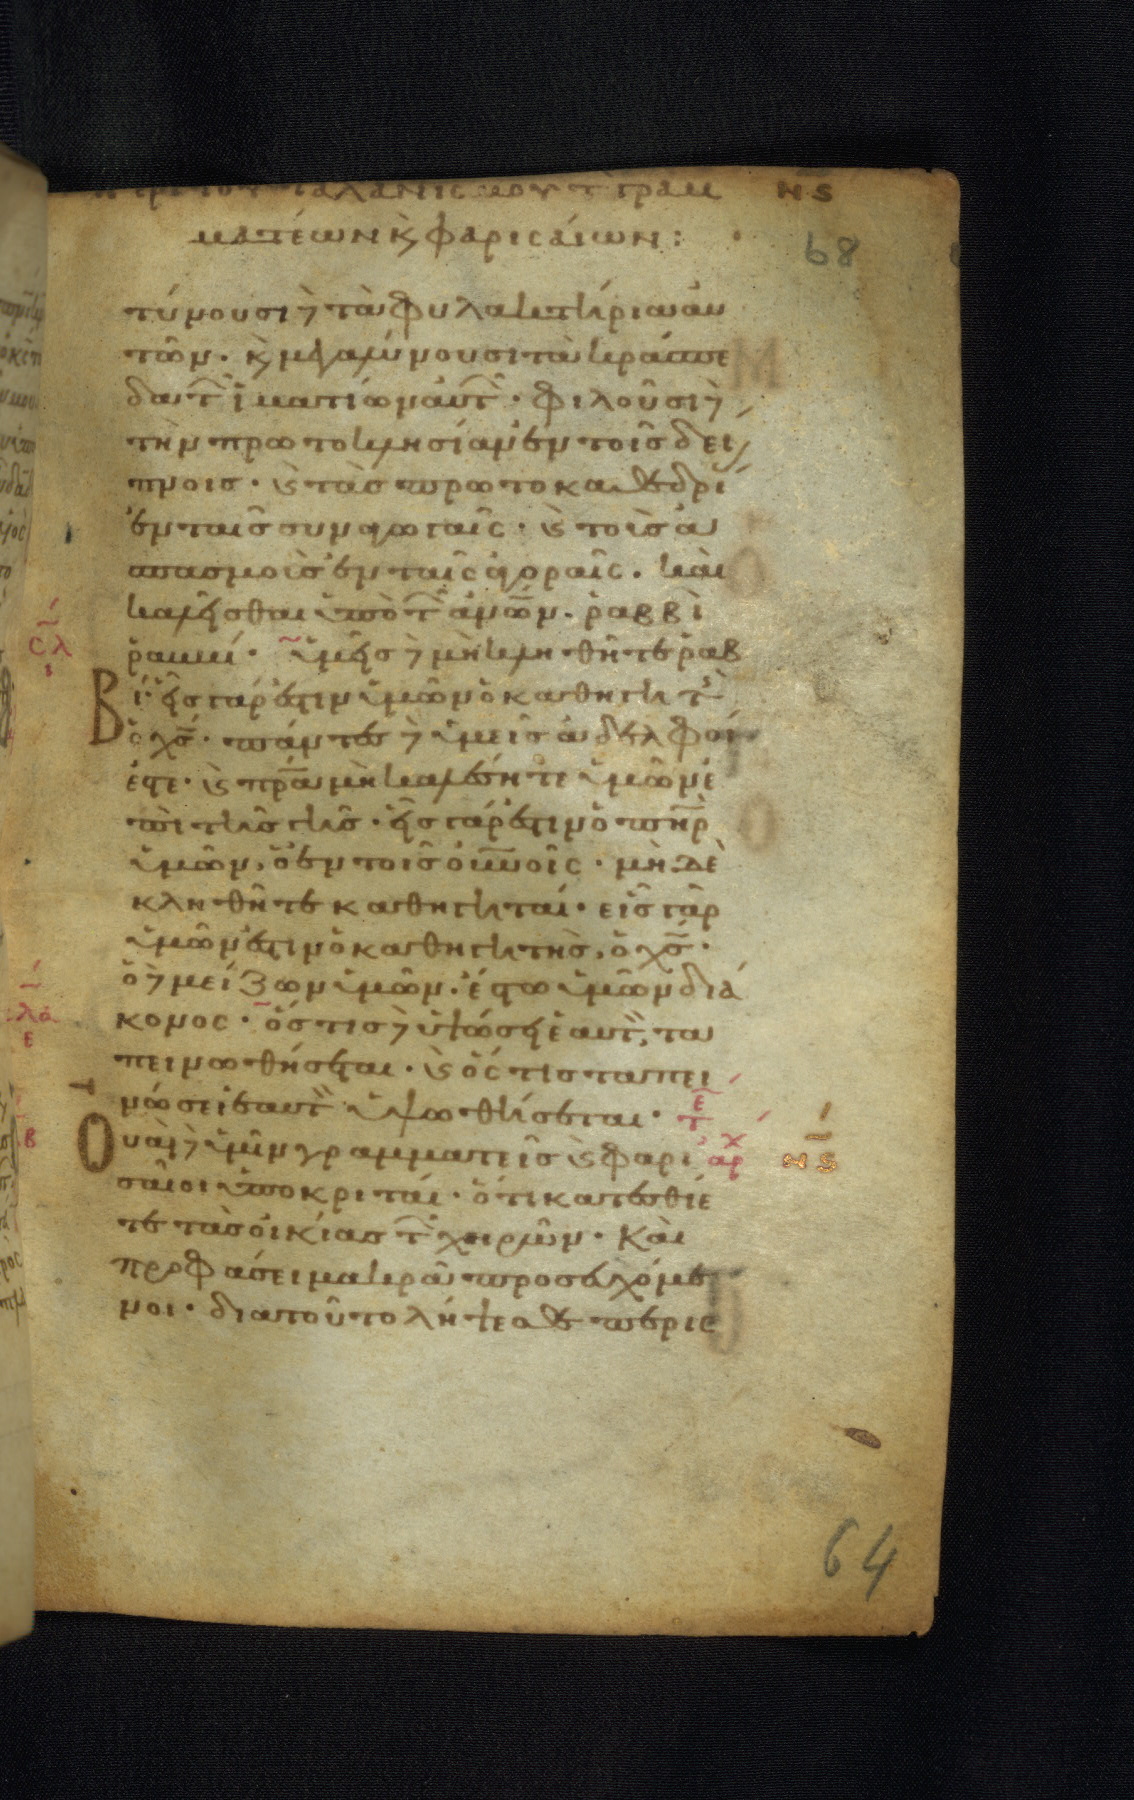 περι του ταλανισμου τ γραμ νς
ματέων κ φαρισαίων :
68
τύνουσι δὲ τὰ φυλακτήρια αὐ
τῶν · κ μεγαλύνουσι τὰ κράσπε
δα τῶν ἱματίων αὐτῶν · φιλοῦσι δὲ
τὴν πρωτοκλησίαν ἐν τοῖς δεί
πνοις · κ τὰς πρωτοκαθεδρί
ἐν ταῖς συναγωγαῖς · κ τοὺς ἀ
σπασμοὺς ἐν ταῖς ἀγοραῖς · καὶ
καλεῖσθαι ὑπὸ τῶν ἀνων · ῥαββὶ
ῥαββί · ὑμεῖς δὲ μὴ κληθῆτε ῥαβ
βί · εἷς γάρ ἐστιν ὑμῶν ὁ καθηγητὴς
ὁ χς · πάντες δὲ ὑμεῖς ἀδελφοί
ἐστε · κ πρα μὴ καλέσητε ὑμῶν ἐ
πὶ τῆς γῆς · εἷς γάρ ἐστιν ὁ πηρ
ὑμῶν, ὁ ἐν τοῖς οὐνοῖς · μὴ δὲ
κληθῆτε καθηγηταί · εἷς γὰρ
ὑμῶν ἐστιν ὁ καθηγητὴς, ὁ χς ·
ὁ δὲ μείζων ὑμῶν · ἔστω ὑμῶν διά
κονος · ὅστις δὲ ὑψώσει ἑαυτὸν, τα
πεινωθήσεται · κ ὅστις ταπει
νώσει ἑαυτὸν ὑψωθήσεται ·
Οὐαὶ δὲ ὑμῖν γραμματεῖς κ φαρι αρχ νς
σαῖοι ὑποκριταί · ὅτι κατεσθίε
τε τὰς οἰκίας τῶν χηρῶν · καὶ
προφάσει μακρὰ προσευχόμε
νοι · διατοῦτο λήψεσθε περισ
64